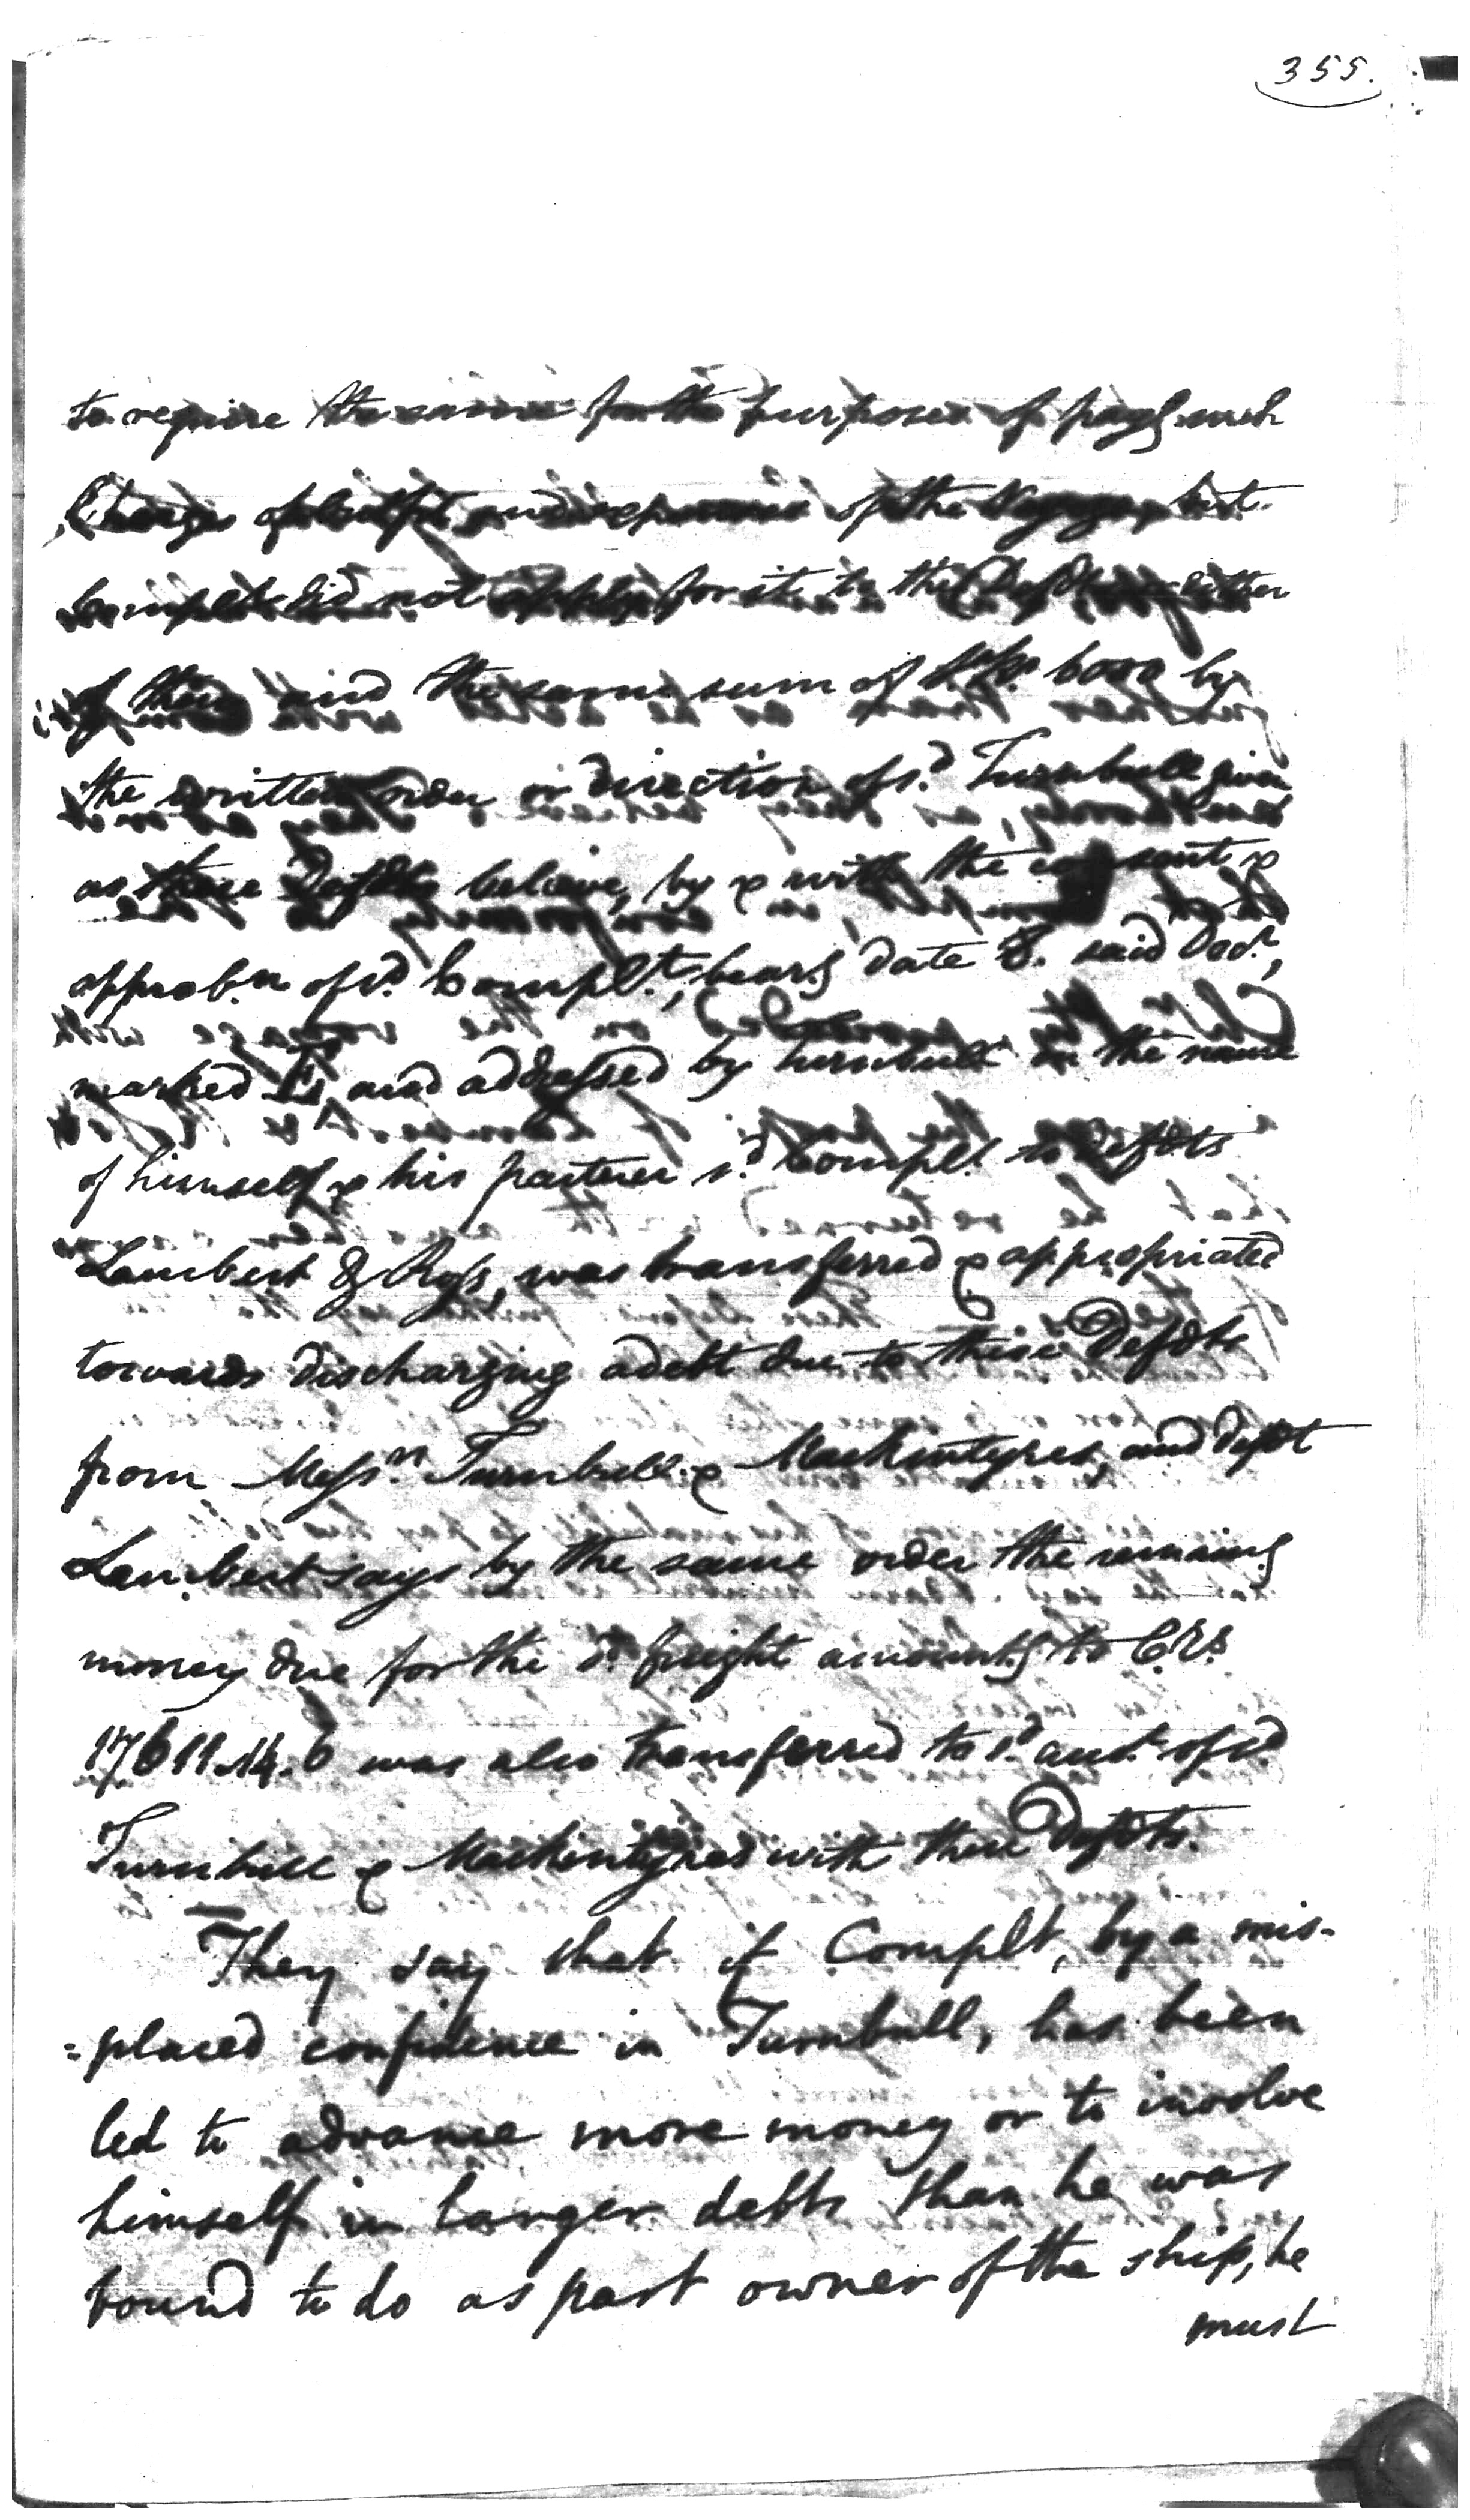 355.
to require the same for the purposes of payg such
Charges of outfit and expences of the Voyage, but
Complt did not apply for it to these Defdts or either
of them and the same sum of 6000 by
the written order or direction of sd. Turnbull given
as these Defdts believe, by & with the consent &
approb.n of sd. Complt., bearg date 8. said Octr.,
marked and addressed by Turnbull in the name
of himself & his partner sd. Complt. to Defdts
Lambert & Ross, was transferred & appropriated
towards discharging a debt due to these Defdts
from Messrs. Turnbull & Mackintyres, and Defdt
Lambert says by the same order the remaining
money due for the sd. freight amountg to C.Rs.
17611.14.6 was also transferred to sd. acct. of sd.
Turnbull & Mackintyres with these Defdts.
They say that if Complt, by a mis-
=placed confidence in Turnbull, has been
led to advance more money or to involve
himself in larger debts than he was
bound to do as part owner of the ship, he
must